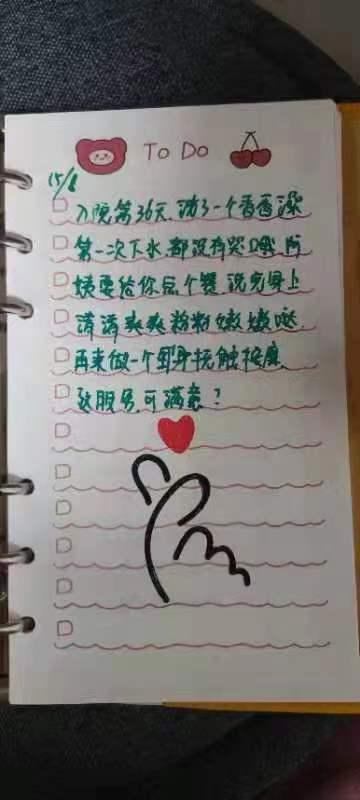 To Do
15/8
入院第36天,洗了一个香香澡
第一次下水,都没有哭哦,阿
姨要给你点个赞,洗完身上
清清爽爽粉粉嫩嫩哒.
再来做一个全身抚触按摩,
舒服另,可满意?